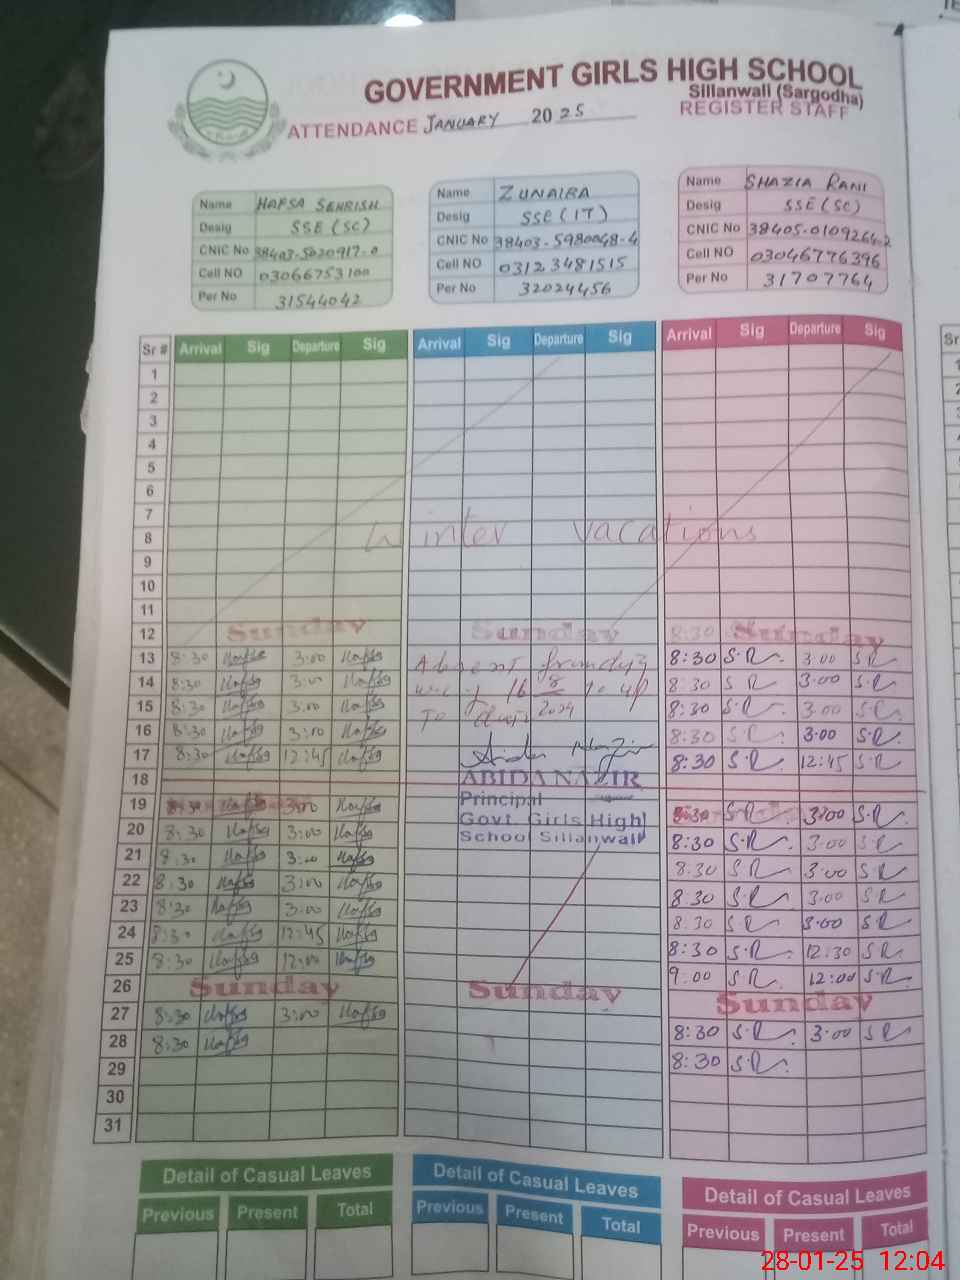 GOVERNMENT GIRLS HIGH SCHOOL
Sillanwali (Sargodha)
ATTENDANCE JANUARY 2025 REGISTER STAFF
Name HAFSA SEHRISH
Desig SSE (SC)
CNIC No 38403-5020917-0
Cell NO 03066753100
Per No 31544042
Name ZUNAIRA
Desig SSE (IT)
CNIC No 38403-5980048-4
Cell NO 03123481515
Per No 32024456
Name SHAZIA RANI
Desig SSE (SC)
CNIC No 38405-0109264-2
Cell NO 03046776396
Per No 31707764
Sr # Arrival Sig Departure Sig Arrival Sig Departure Sig Arrival Sig Departure Sig
1
2
3
4
5
6
7
8 Winter vacations
9
10
11
12 Sunday Sunday 8:30 Sunday
13 8:30 Hafsa 3:00 Hafsa Absent 8:30 S.R 3:00 S.R
14 8:30 Hafsa 3:00 Hafsa 16 8 to up 8:30 S R 3:00 S.R
15 8:30 Hafsa 3:00 Hafsa To 2024 8:30 S.R 3:00 S.R
16 8:30 Hafsa 3:00 Hafsa 8:30 S.R 3:00 S.R
17 8:30 Hafsa 12:45 Hafsa 8:30 S.R 12:45 S.R
18 ABIDA NAZIR
19 8:30 Hafsa 3:00 Hafsa Principal 8:30 S.R 3:00 S.R
20 8:30 Hafsa 3:00 Hafsa Govt. Girls High 8:30 S.R 3:00 S.R
21 8:30 Hafsa 3:00 Hafsa School Sillanwali 8:30 S.R 3:00 S.R
22 8:30 Hafsa 3:00 Hafsa 8:30 S.R 3:00 S.R
23 8:30 Hafsa 3:00 Hafsa 8:30 S.R 3:00 S.R
24 8:30 Hafsa 12:45 Hafsa 8:30 S.R 12:30 S.R
25 8:30 Hafsa 12:00 Hafsa 9:00 S.R 12:00 S.R
26 Sunday Sunday Sunday
27 8:30 Hafsa 3:00 Hafsa 8:30 S.R 3:00 S.R
28 8:30 Hafsa 8:30 S.R
29
30
31
Detail of Casual Leaves Detail of Casual Leaves Detail of Casual Leaves
Previous Present Total Previous Present Total Previous Present Total
28-01-25 12:04